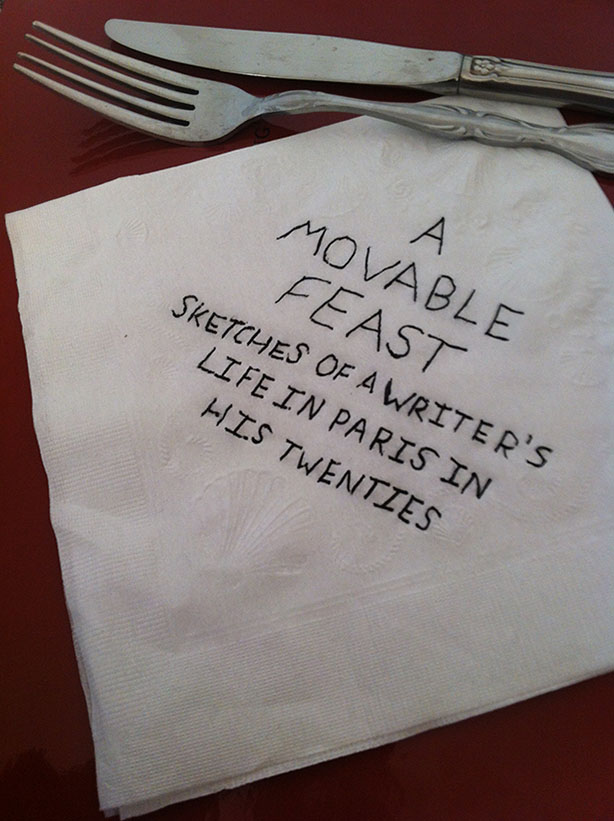 A
MOVABLE
FEAST
SKETCHES OF A WRITER'S
LIFE IN PARIS IN
HIS TWENTIES